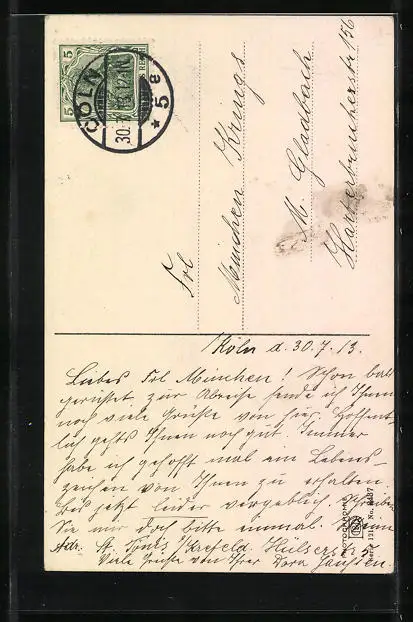 5
5
CÖLN
30.7.13.12-1N.
* 5 e
Frl
Minchen Krings
M. Gladbach
Harterbrucherstr 156
Köln d. 30.7.13.
Liebes Frl Minchen! Schon bald
gerüstet zur Abreise sende ich Ihnen
noch viele Grüße von hier. Hoffent-
lich gehts Ihnen noch gut. Immer
habe ich gehofft mal ein Lebens-
zeichen von Ihnen zu erhalten.
Bis jetzt leider vergeblich. Schreiben
Sie mir doch bitte einmal. Meine
Adr. St. Tönis /Krefeld. Hülserstr
Viele Grüße von Ihrer Dora Janssen.
PHOTOCHROMIE
Serie 121 No.